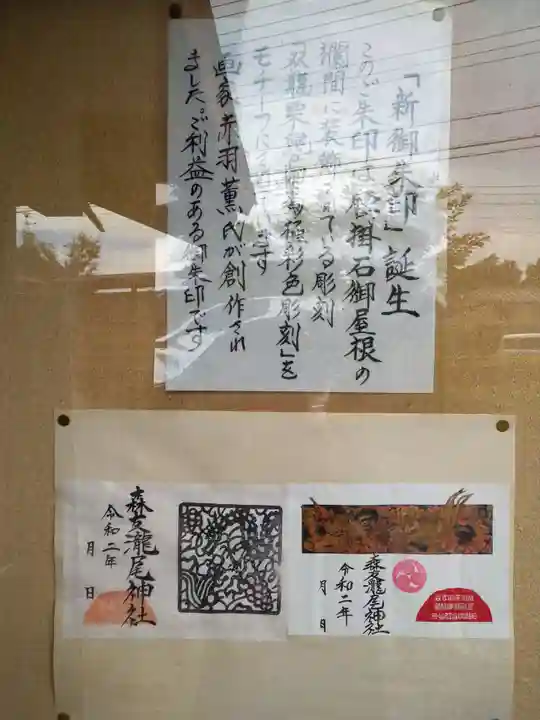 「新御朱印」誕生
このご朱印は 掛石御屋根の
欄間に装飾されている彫刻
極彩色彫刻」を
モチーフに
画家 赤羽薫氏が創作され
ました。ご利益のある御朱印です
森友瀧尾神社
令和二年
月 日
森友瀧尾神社
令和二年
月 日